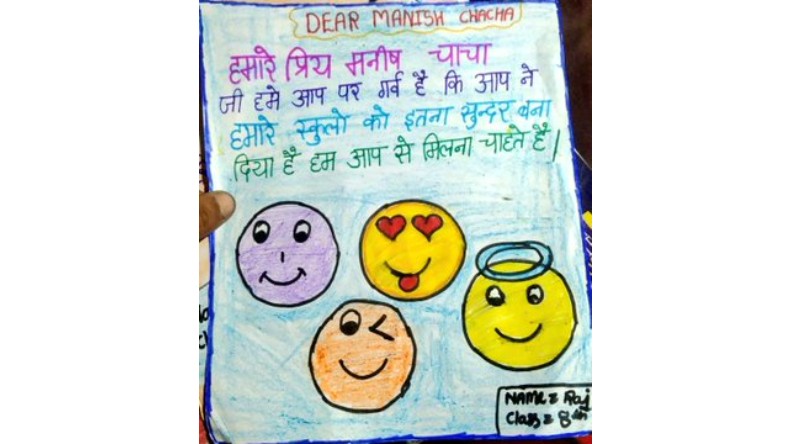 DEAR MANISH CHACHA
हमारे प्रिय मनीष चाचा
जी हमे आप पर गर्व है कि आप ने
हमारे स्कुलो को इतना सुन्दर बना
दिया है हम आप से मिलना चाहते है।
NAME = Raj
Class = 8th